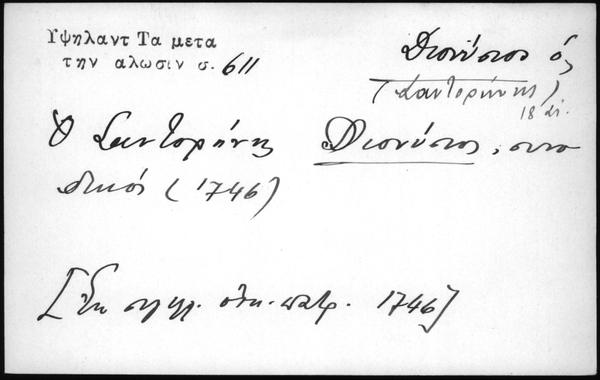 Υψηλαντ Τα μετα
την αλωσιν σ. 611
Διονύσιος ὁ
(Σαντορίνης)
18 αἰ.
Ὁ Σαντορήνης Διονύσιος, συνο
δικός (1746)
[Ἐκ σιγιλ. οἰκ. πατρ. 1746]